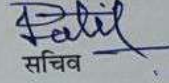 Patil
सचिव